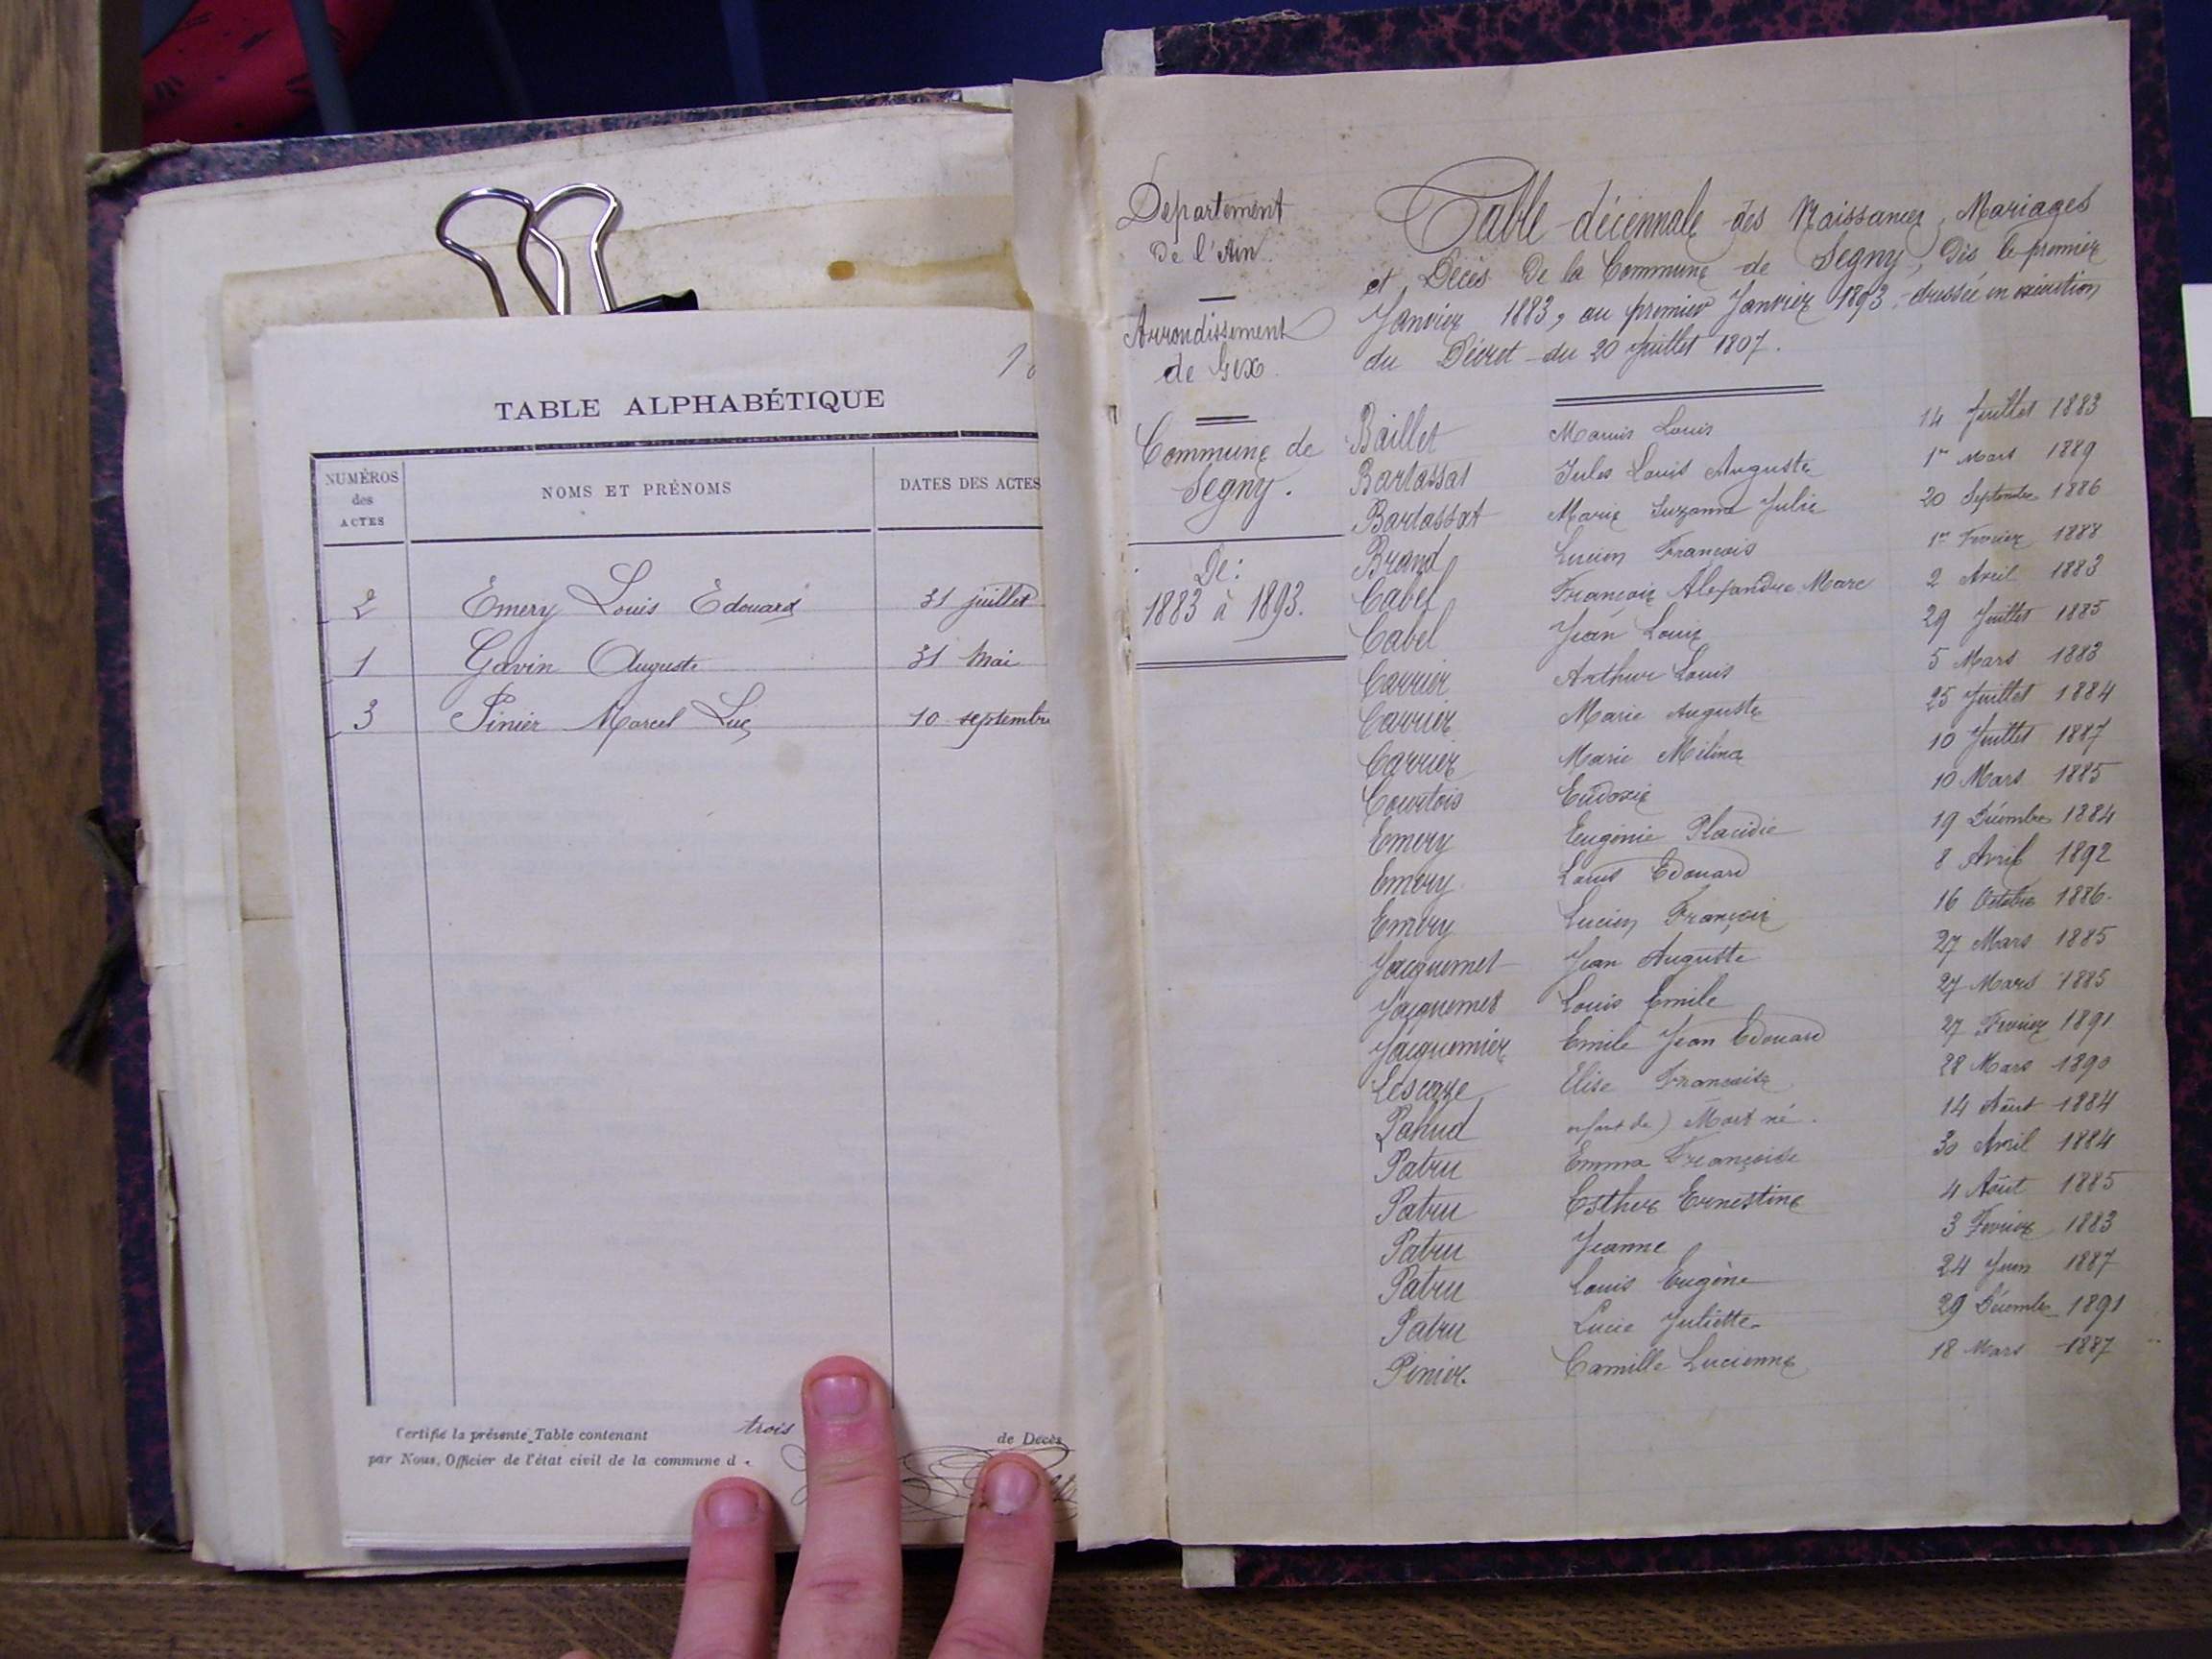 TABLE ALPHABÉTIQUE
NUMÉROS des ACTES
NOMS ET PRÉNOMS
DATES DES ACTES
2 Emery Louis Edouard 31 juillet
1 Gavin Auguste 31 Mai
3 Pinier Marcel Luc 10 septembre
Certifié la présente Table contenant trois de Décès
par Nous, Officier de l'état civil de la commune d
Département
De l'Ain.
Arrondissement
de Gex.
Commune de
Segny.
De:
1883 à 1893.
Table décennale des Naissances, Mariages
et Décès De la Commune de Segny, Dès le premier
Janvier 1883, au premier Janvier 1893, dressée en exécution
du Décret du 20 Juillet 1807.
Baillet Marius Louis 14 Juillet 1883
Bartassat Jules Louis Auguste 1er Mars 1889
Bartassat Marie Suzanne Julie 20 Septembre 1886
Brand Lucien François 1er Fevrier 1888
Cabel François Alexandre Marc 2 Avril 1883
Cabel Jean Louis 29 Juillet 1885
Carrier Arthur Louis 5 Mars 1883
Carrier Marie Auguste 25 Juillet 1884
Carrier Marie Mélina 10 Juillet 1887
Courtois Eudoxie 10 Mars 1885
Emery Eugénie Placidie 19 Décembre 1884
Emery Louis Edouard 8 Avril 1892
Emery Lucien François 16 Octobre 1886.
Jacquemet Jean Auguste 27 Mars 1885
Jacquemet Louis Emile 27 Mars 1885
Jacquemier Emile Jean Edouard 27 Fevrier 1891
Lescaze Elise Françoise 28 Mars 1890
Pahud enfant de) Mort né. 14 Août 1884
Patru Emma Françoise 30 Avril 1884
Patru Esther Ernestine 4 Août 1885
Patru Jeanne 3 Fevrier 1883
Patru Louis Eugène 24 Juin 1887
Patru Lucie Juliette 29 Décembre 1891
Pinier. Camille Lucienne 18 Mars 1887